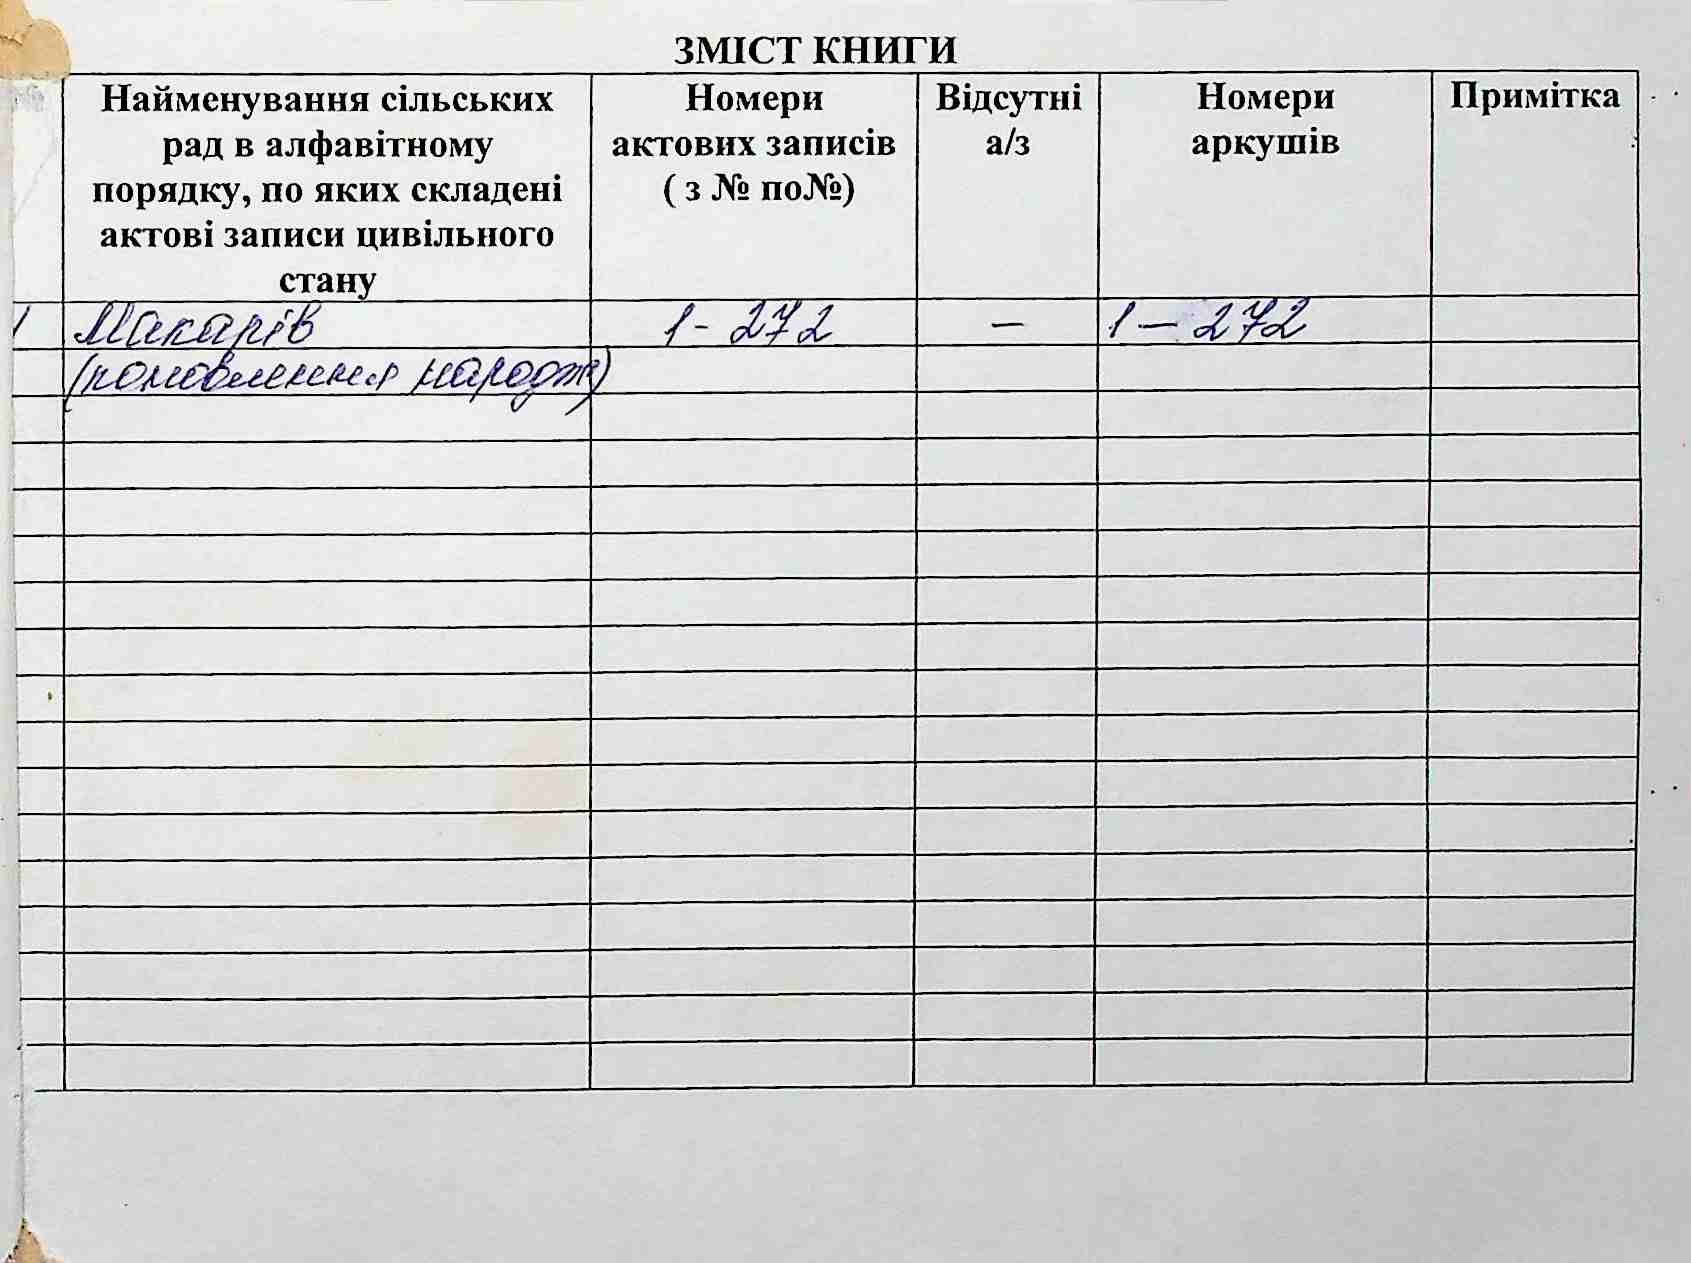 ЗМІСТ КНИГИ
Найменування сільських рад в алфавітному порядку, по яких складені актові записи цивільного стану
Номери актових записів ( з № по№)
Відсутні а/з
Номери аркушів
Примітка
1 Макарів 1- 272 — 1 — 272
(поновлення народж)